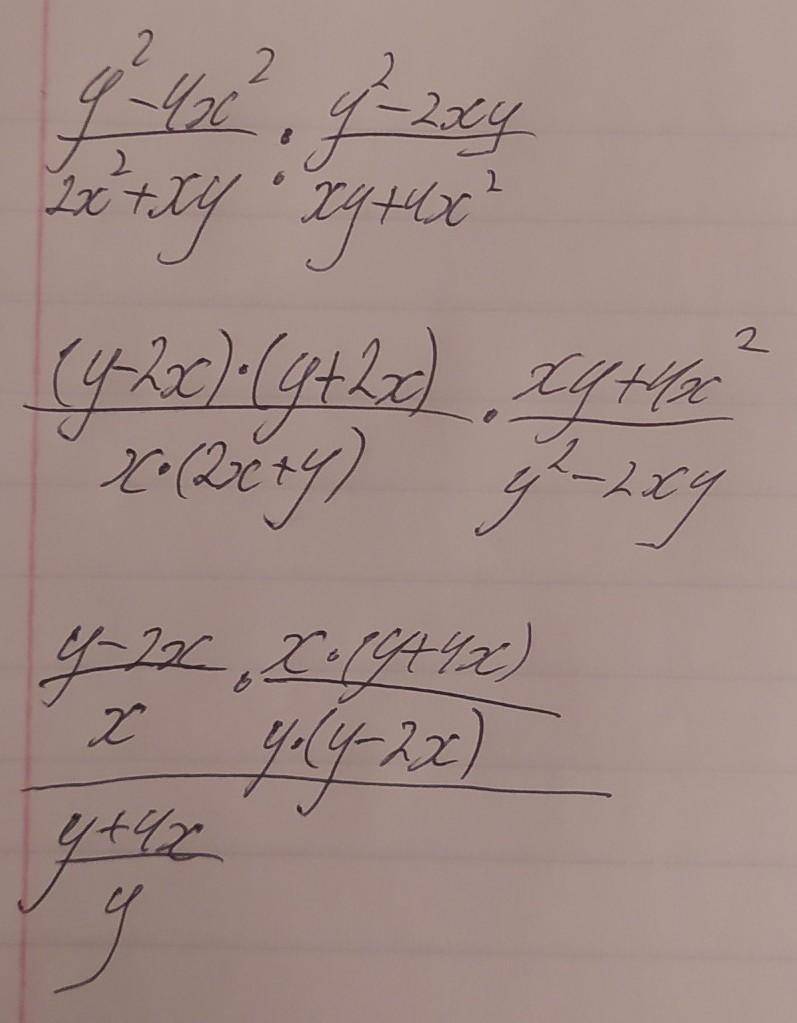 (y²-4x²)/(2x²+xy) : (y²-2xy)/(xy+4x²)
((y-2x)·(y+2x))/(x·(2x+y)) · (xy+4x²)/(y²-2xy)
(y-2x)/x · (x·(y+4x))/(y·(y-2x))
(y+4x)/y